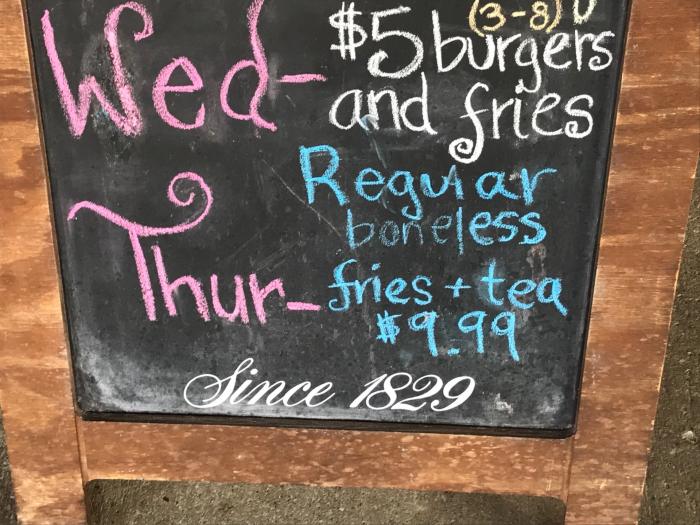 (3-8)
Wed- $5 burgers
and fries
Regular
boneless
Thur- fries + tea
$9.99
Since 1829